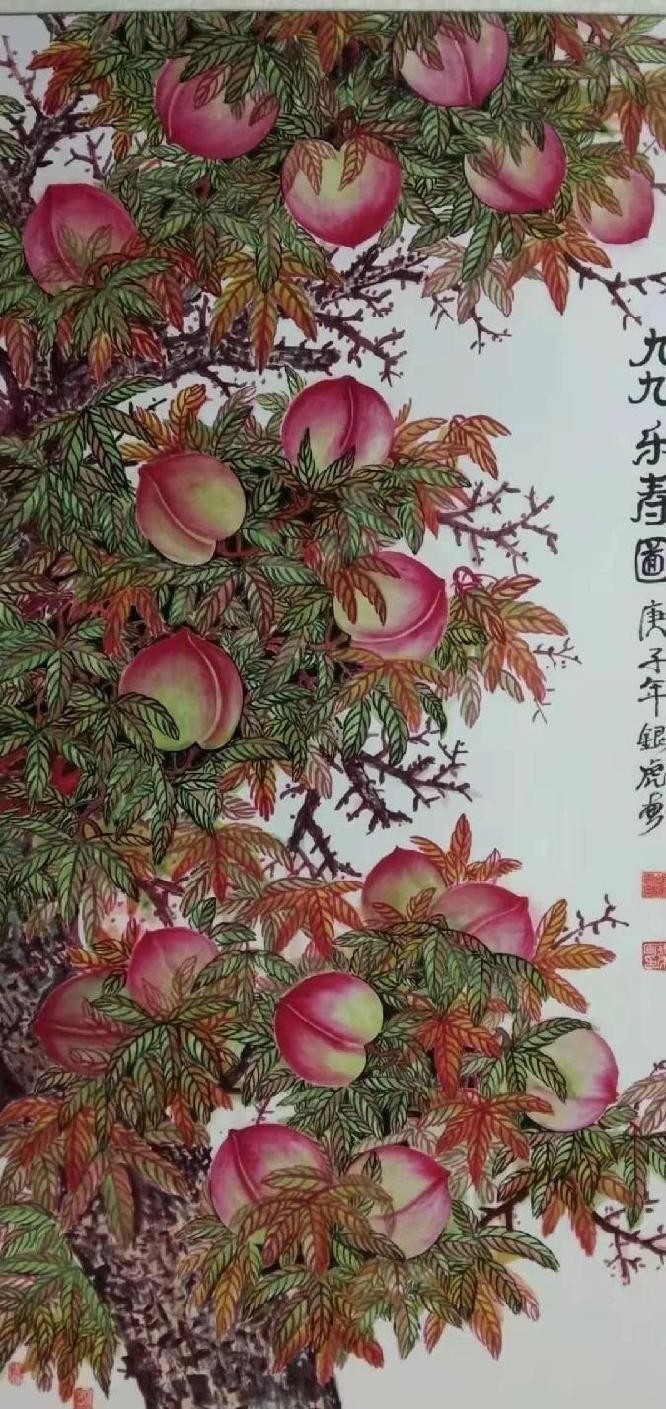 九九乐寿圖
庚子年银虎画